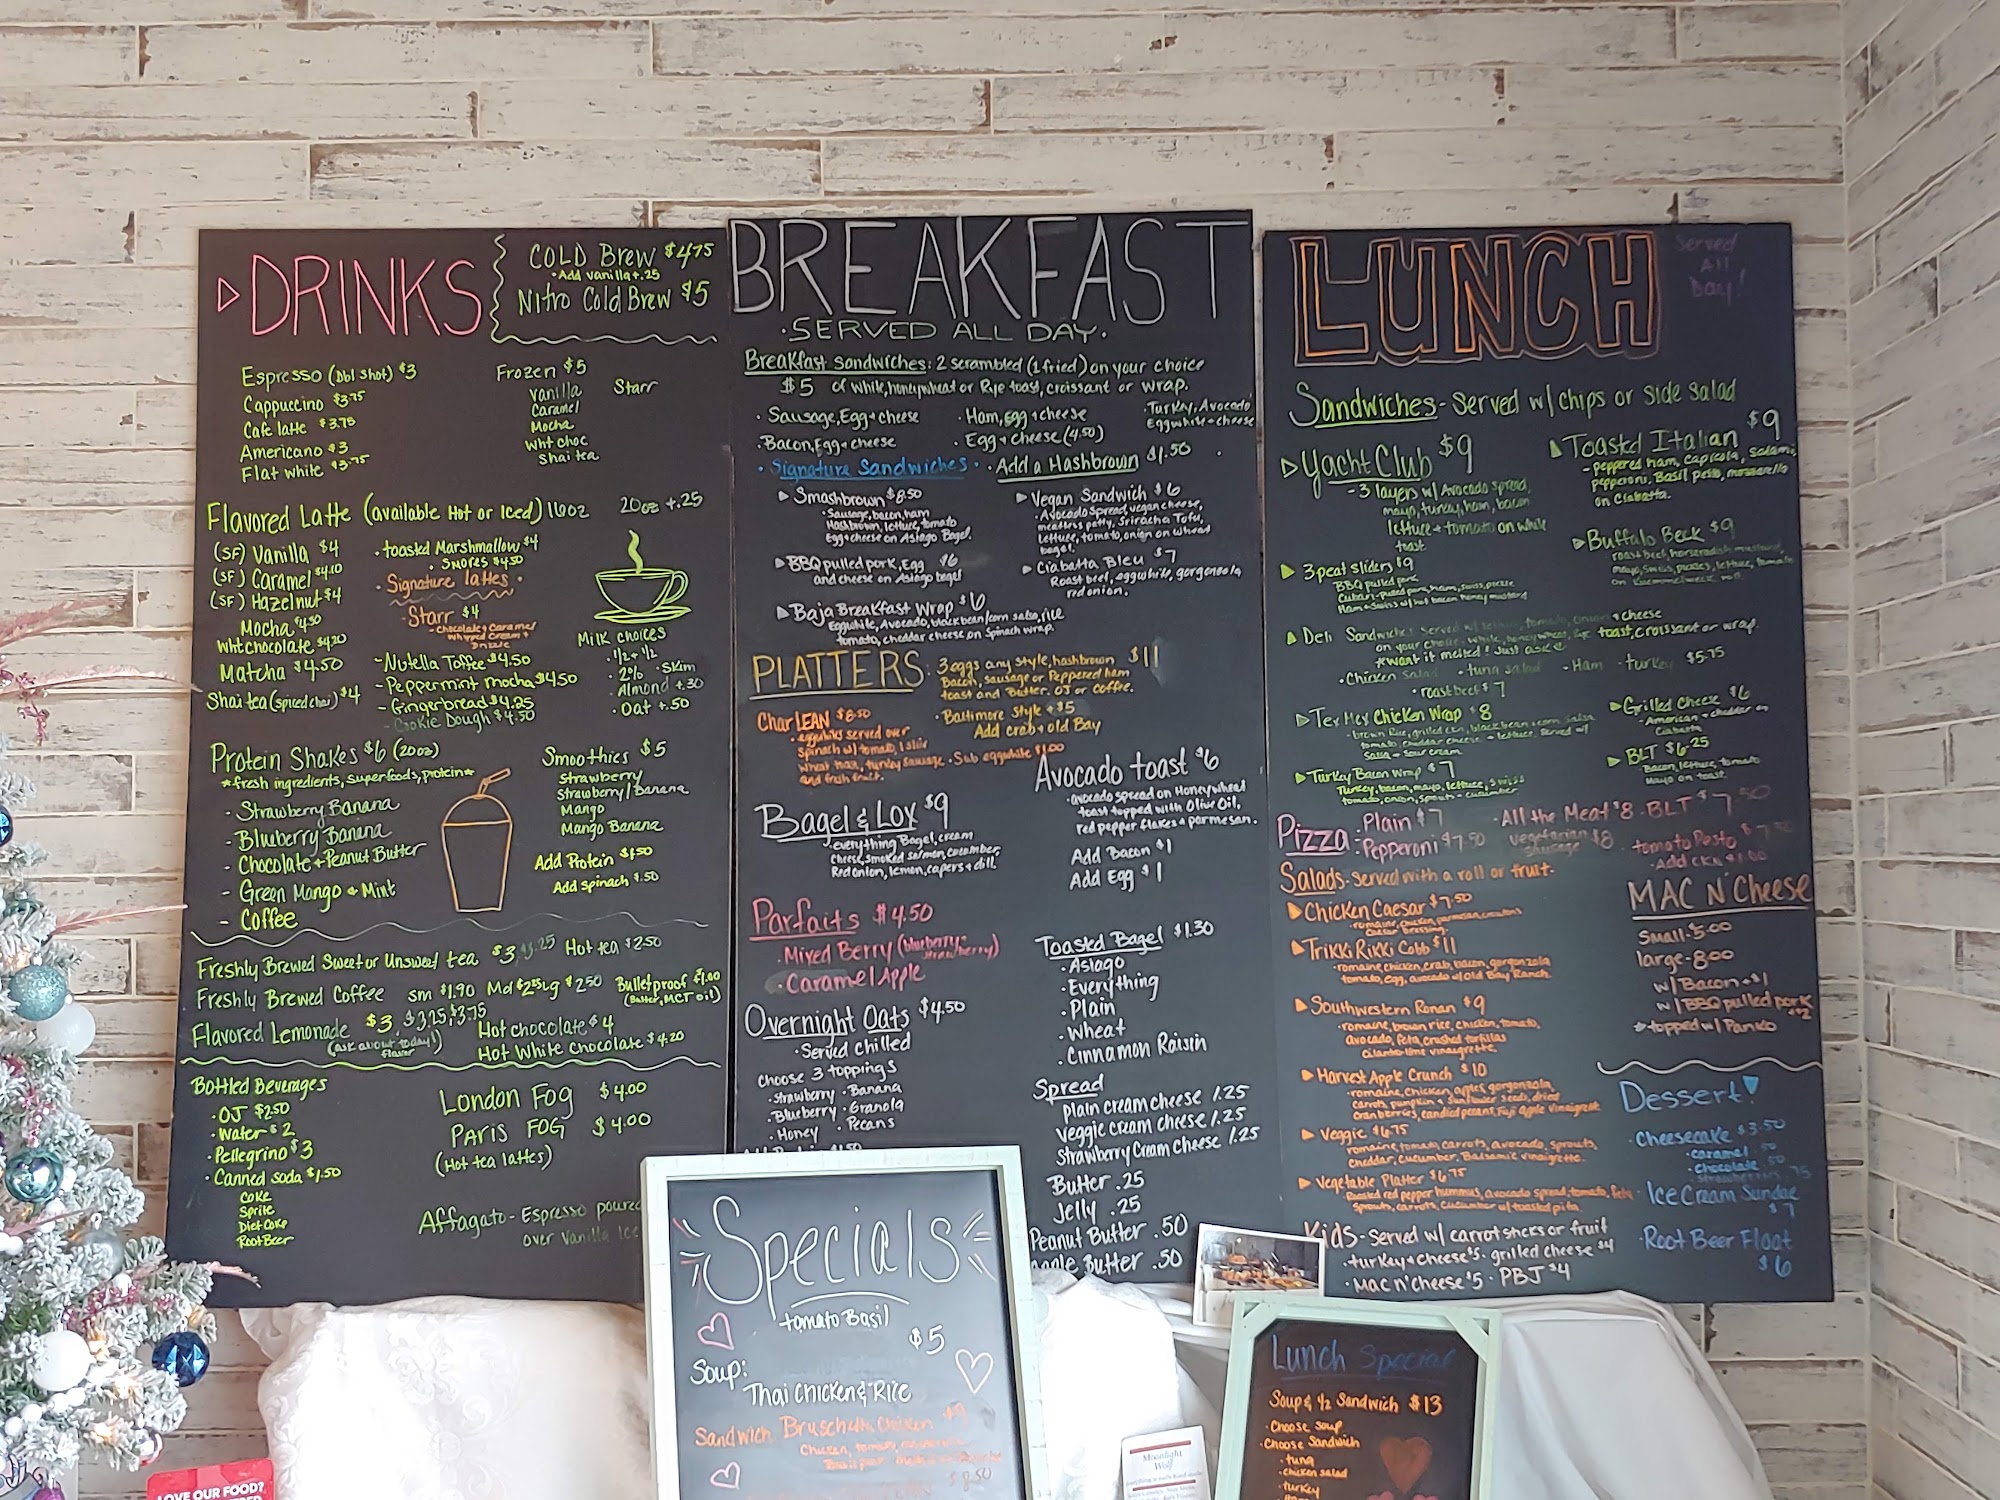 DRINKS
COLD Brew $4.75
• Add vanilla +.25
Nitro Cold Brew $5
Espresso (Dbl shot) $3
Cappuccino $3.75
Cafe latte $3.75
Americano $3
Flat white $3.75
Frozen $5
Vanilla Starr
Caramel
Mocha
Wht choc
Shai tea
Flavored Latte (available Hot or Iced) 16oz 20oz +.25
(SF) Vanilla $4
(SF) Caramel $4.10
(SF) Hazelnut $4
Mocha $4.50
Wht chocolate $4.20
Matcha $4.50
Shai tea (spiced chai) $4
• toasted Marshmallow $4
• Smores $4.50
• Signature lattes •
• Starr $4
- Chocolate & Caramel
Whipped Cream +
Drizzle
- Nutella Toffee $4.50
- Peppermint mocha $4.50
- Gingerbread $4.25
- Cookie Dough $4.50
Milk choices
• 1/2 + 1/2
• 2% • Skim
• Almond +.30
• Oat +.50
Protein Shakes $6 (20oz)
*fresh ingredients, superfoods, protein*
- Strawberry Banana
- Blueberry Banana
- Chocolate + Peanut Butter
- Green Mango & Mint
- Coffee
Smoothies $5
Strawberry
Strawberry/Banana
Mango
Mango Banana
Add Protein $1.50
Add spinach $.50
Freshly Brewed Sweet or Unsweet tea $3 Hot tea $2.50
Freshly Brewed Coffee sm $1.90 Md $2.25 Lg $2.50 Bulletproof $1.00
(Butter, MCT oil)
Flavored Lemonade $3, $3.25, $3.75
(ask about today's
flavor)
Hot chocolate $4
Hot White Chocolate $4.20
Bottled Beverages
• OJ $2.50
• Water $2
• Pellegrino $3
• Canned soda $1.50
Coke
Sprite
Diet Coke
Root Beer
London Fog $4.00
Paris Fog $4.00
(Hot tea lattes)
Affagato - Espresso poured
over Vanilla Ice
BREAKFAST
• SERVED ALL DAY •
Breakfast Sandwiches: 2 scrambled (1 fried) on your choice
$5 of white, honeywheat or Rye toast, croissant or wrap.
• Sausage, Egg + cheese
• Bacon, Egg + cheese
• Ham, egg + cheese
• Egg + cheese (4.50)
• Turkey, Avocado
Eggwhite + cheese
• Signature Sandwiches •
• Add a Hashbrown $1.50
Smashbrown $8.50
• Sausage, bacon, ham
Hashbrown, lettuce, tomato
Egg + cheese on Asiago Bagel.
BBQ pulled pork, Egg $6
and cheese on Asiago bagel
Baja Breakfast Wrap $6
Eggwhite, Avocado, black bean/corn salsa, rice
tomato, cheddar cheese on Spinach wrap.
Vegan Sandwich $6
• Avocado Spread, vegan cheese,
meatless patty, Sriracha Tofu,
lettuce, tomato, onion on wheat
bagel.
Ciabatta Bleu $7
Roast beef, eggwhite, gorgonzola
red onion.
PLATTERS: 3 eggs any style, hashbrown $11
Bacon, sausage or Peppered ham
toast and Butter. OJ or Coffee.
• Baltimore Style +$5
Add crab + old Bay
Char LEAN $8.50
• eggwhites served over
spinach w/ tomato, 1 slice
wheat toast, turkey sausage
and fresh fruit.
• Sub eggwhite $1.00
Bagel & Lox $9
• everything Bagel, cream
cheese, smoked salmon, cucumber,
Red onion, lemon, capers + dill.
Avocado toast $6
• avocado spread on Honeywheat
toast topped with Olive Oil,
red pepper flakes & parmesan.
Add Bacon $1
Add Egg $1
Parfaits $4.50
• Mixed Berry (blueberry -
strawberry)
• Caramel Apple
Overnight Oats $4.50
• Served chilled
Choose 3 toppings
• Strawberry • Banana
• Blueberry • Granola
• Honey • Pecans
Toasted Bagel $1.30
• Asiago
• Everything
• Plain
• Wheat
• Cinnamon Raisin
Spread
plain cream cheese 1.25
Veggie cream cheese 1.25
Strawberry Cream Cheese 1.25
Butter .25
Jelly .25
Peanut Butter .50
Butter .50
LUNCH
Served
All
Day!
Sandwiches - Served w/ chips or side salad
Yacht Club $9
- 3 layers w/ Avocado spread,
mayo, turkey, ham, bacon
lettuce + tomato on white
toast
Toasted Italian $9
- peppered ham, capicola, salami,
pepperoni, Basil pesto, mozzarella
on Ciabatta.
3 peat sliders $9
BBQ pulled pork
Cuban - pulled pork, ham, swiss, pickle
Ham + swiss w/ hot bacon honey mustard
Buffalo Beck $9
roast beef, horseradish mustard,
mayo, swiss, pickles, lettuce, tomato
on Kummelweck roll.
Deli Sandwiches served w/ lettuce, tomato, onion + cheese
on your choice - white, honeywheat, Rye toast, croissant or wrap.
*want it melted? Just ask
• Chicken salad • tuna salad • Ham • turkey $5.75
• roast beef $7
Tex Mex Chicken Wrap $8
- brown rice, grilled ckn, black bean + corn salsa
tomato, cheddar cheese + lettuce, served w/
salsa + sour cream
Grilled Cheese $6
- American + cheddar on
Ciabatta
Turkey Bacon Wrap $7
Turkey, bacon, mayo, lettuce, swiss
tomato, onion, sprouts + cucumber
BLT $6.25
Bacon, lettuce, tomato
Mayo on toast.
Pizza • Plain $7
• Pepperoni $7.50
• All the Meat $8
Vegetarian $8
sausage
• BLT $7.50
• tomato Pesto $7.50
- Add ckn $1.00
Salads - served with a roll or fruit.
Chicken Caesar $7.50
• romaine, chicken, parmesan, croutons
Caesar Dressing.
Trikki Rikki Cobb $11
• romaine, chicken, crab, bacon, gorgonzola
tomato, egg, avocado w/ Old Bay Ranch.
Southwestern Ronan $9
• romaine, brown rice, chicken, tomato,
avocado, feta, crushed tortillas
cilantro-lime vinaigrette.
Harvest Apple Crunch $10
• romaine, chicken, apples, gorgonzola,
carrots, pumpkin + sunflower seeds, dried
cranberries, candied pecans, Fuji apple vinaigrette
Veggie $6.75
romaine, tomato, carrots, avocado, sprouts,
cheddar, cucumber. Balsamic vinaigrette.
Vegetable Platter $6.75
Roasted red pepper hummus, avocado spread, tomato, feta
sprouts, carrots, cucumber w/ toasted pita
Kids - served w/ carrot sticks or fruit
• turkey + cheese $5 • grilled cheese $4
• Mac n' cheese $5 • PBJ $4
MAC N' Cheese
Small - 5.00
large - 8.00
w/ Bacon + $1
w/ BBQ pulled pork
+$2
*topped w/ Panko
Dessert
• Cheesecake $3.50
• caramel .50
• chocolate .50
strawberries .75
• Ice Cream Sundae
$7
• Root Beer Float
$6
Specials
tomato Basil
$5
Soup:
Thai Chicken & Rice
Sandwich Bruschetta Chicken $9
$8.50
Lunch Special
Soup & 1/2 Sandwich $13
• Choose soup
• Choose Sandwich
• tuna
• chicken salad
• turkey
Moonlight
Wolf
LOVE OUR FOOD?